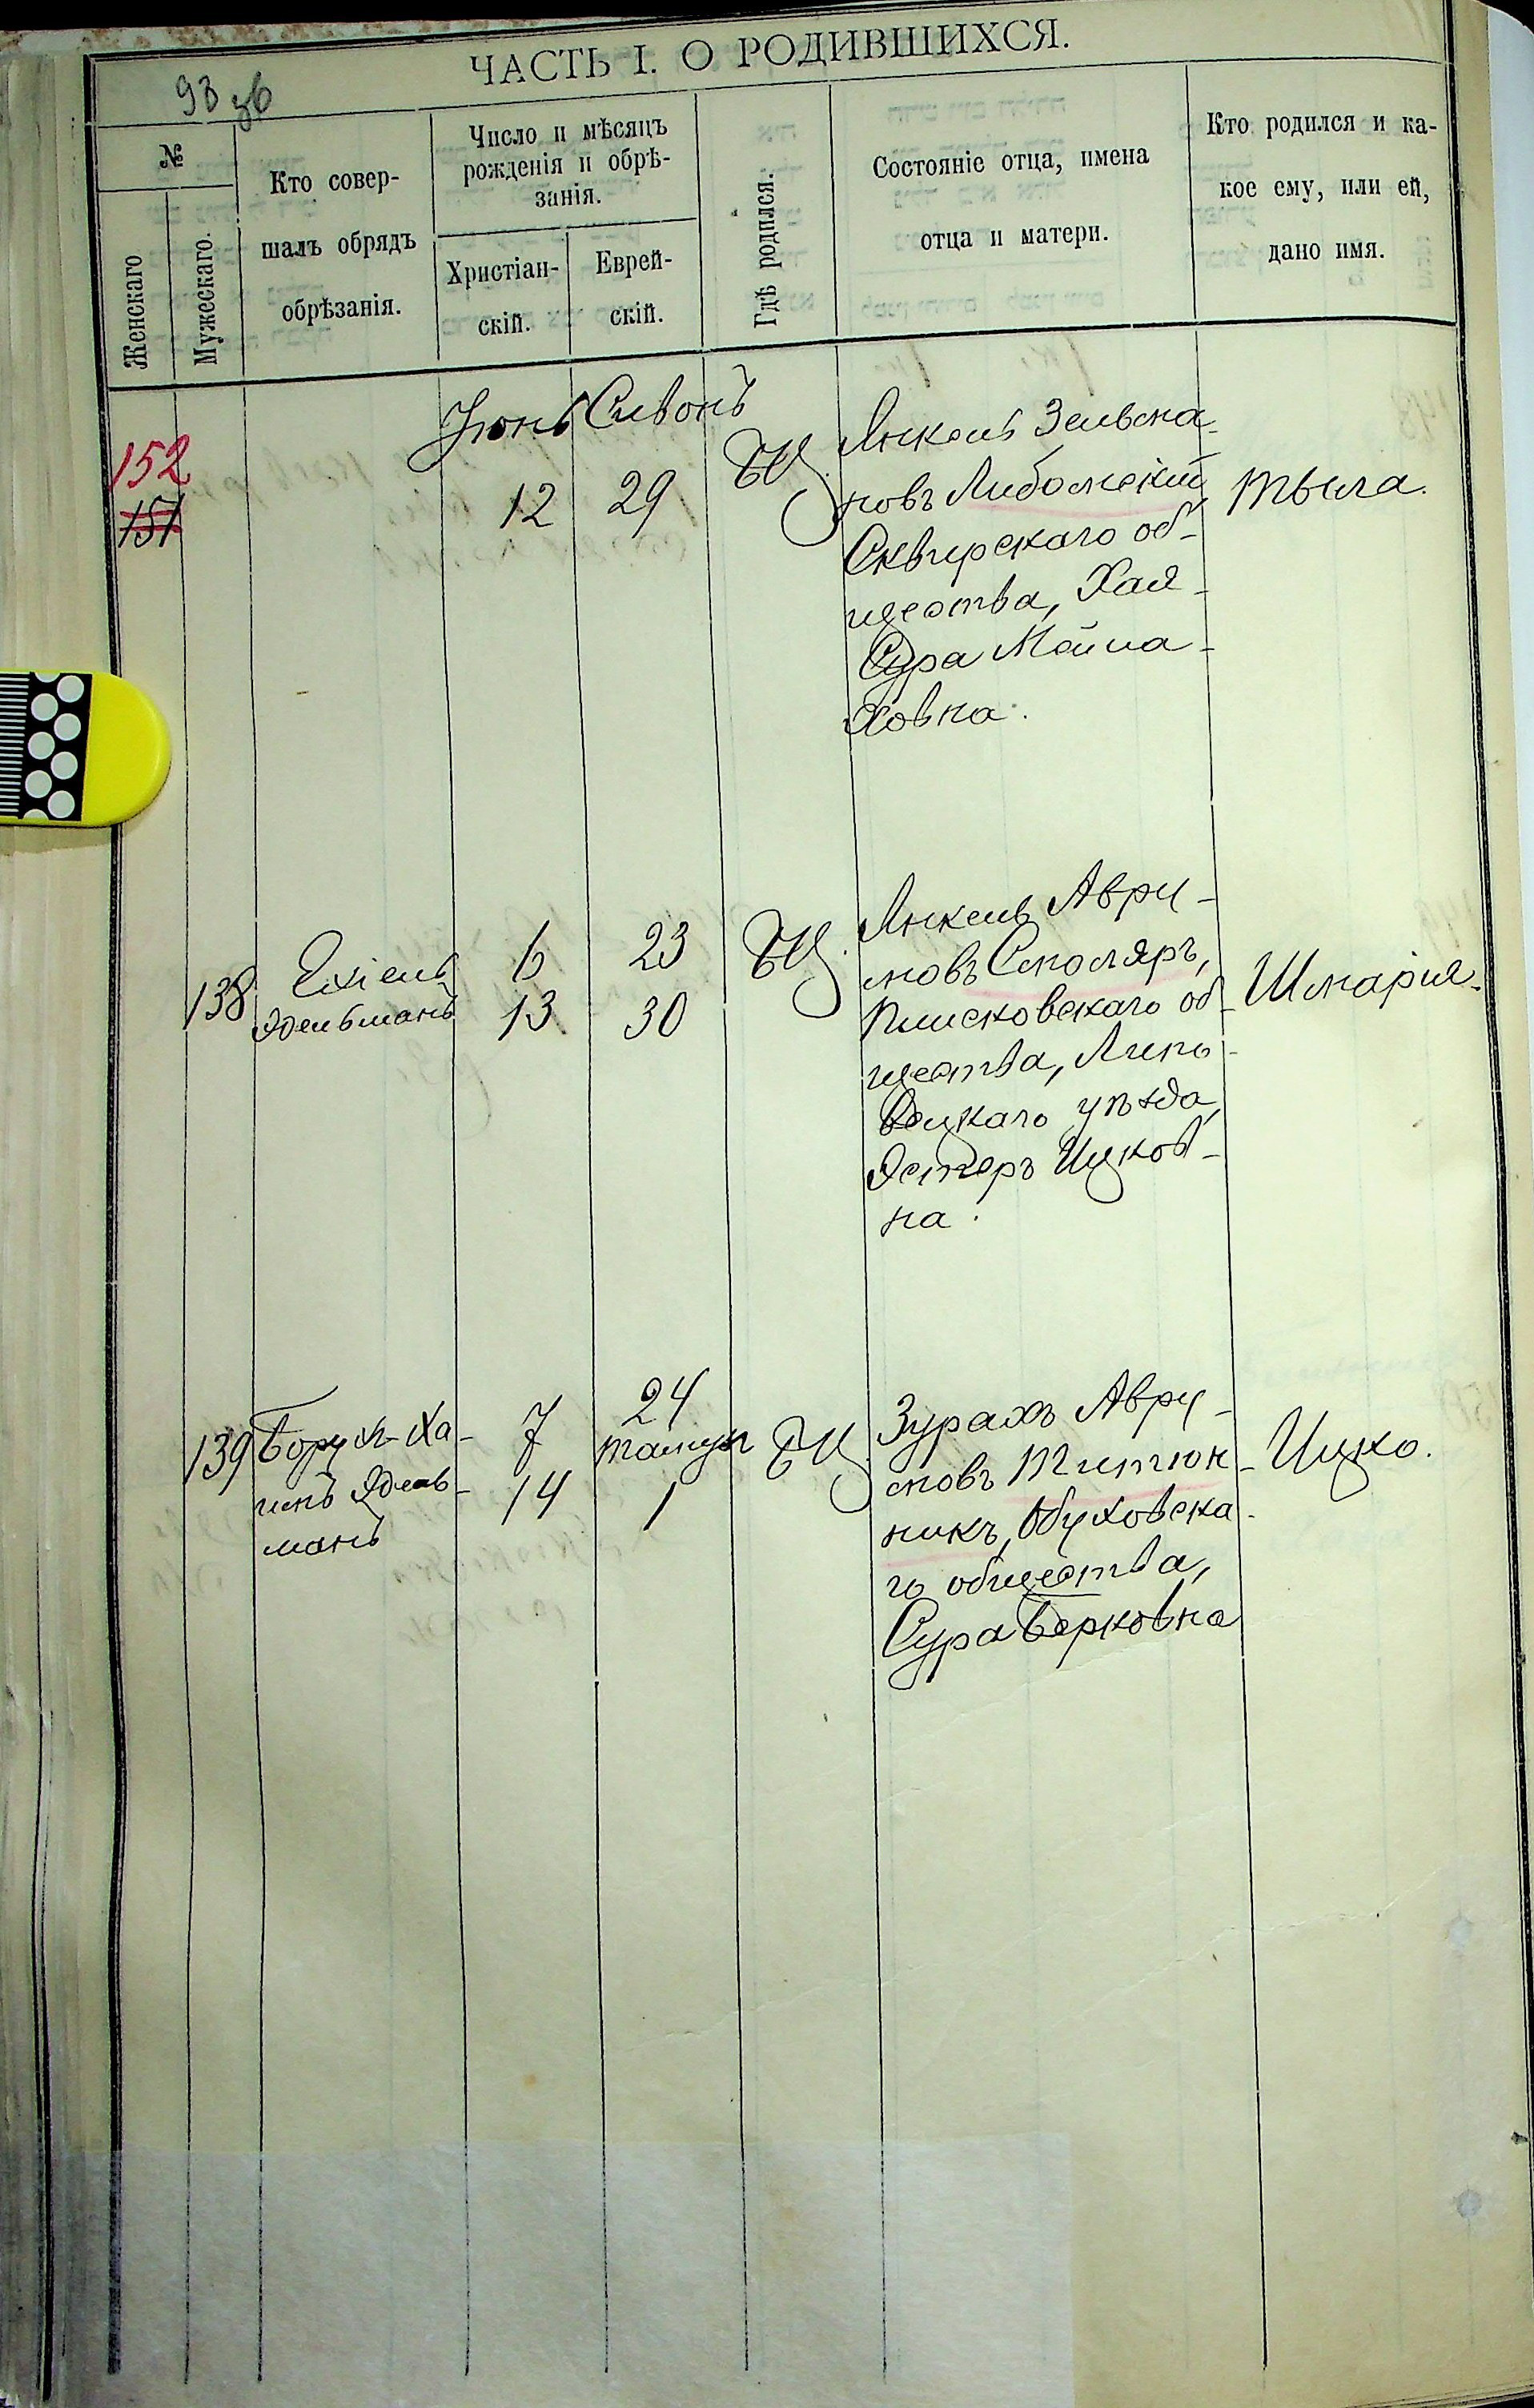 ЧАСТЬ I. О РОДИВШИХСЯ.
93 зв
№
Женскаго
Мужескаго.
Кто совер-
шалъ обрядъ
обрѣзанія.
Число и мѣсяцъ
рожденія и обрѣ-
занія.
Христіан-
скій.
Еврей-
скій.
Гдѣ родился.
Состояніе отца, имена
отца и матери.
Кто родился и ка-
кое ему, или ей,
дано имя.
Іюнь Сивонъ
152
151
12
29
БЦ.
Янкель Зельма-
новъ Любомскій
Сквирскаго об-
щества, Хая
Сура Мойша-
ховна.
Тыла.
138
Ехіель
Эдельманъ
6
13
23
30
БЦ.
Янкель Авру-
мовъ Столяръ,
Плисковскаго об-
щества, Липо-
вецкаго уѣзда,
Эстеръ Ицков-
на.
Шмарія.
139
Борух-Ха-
имъ Эдель-
манъ
7
14
24
Тамуз
1
БЦ
Зурахъ Авру-
мовъ Тютюн-
никъ, Обуховска-
го общества,
Сура Берковна
Ицко.